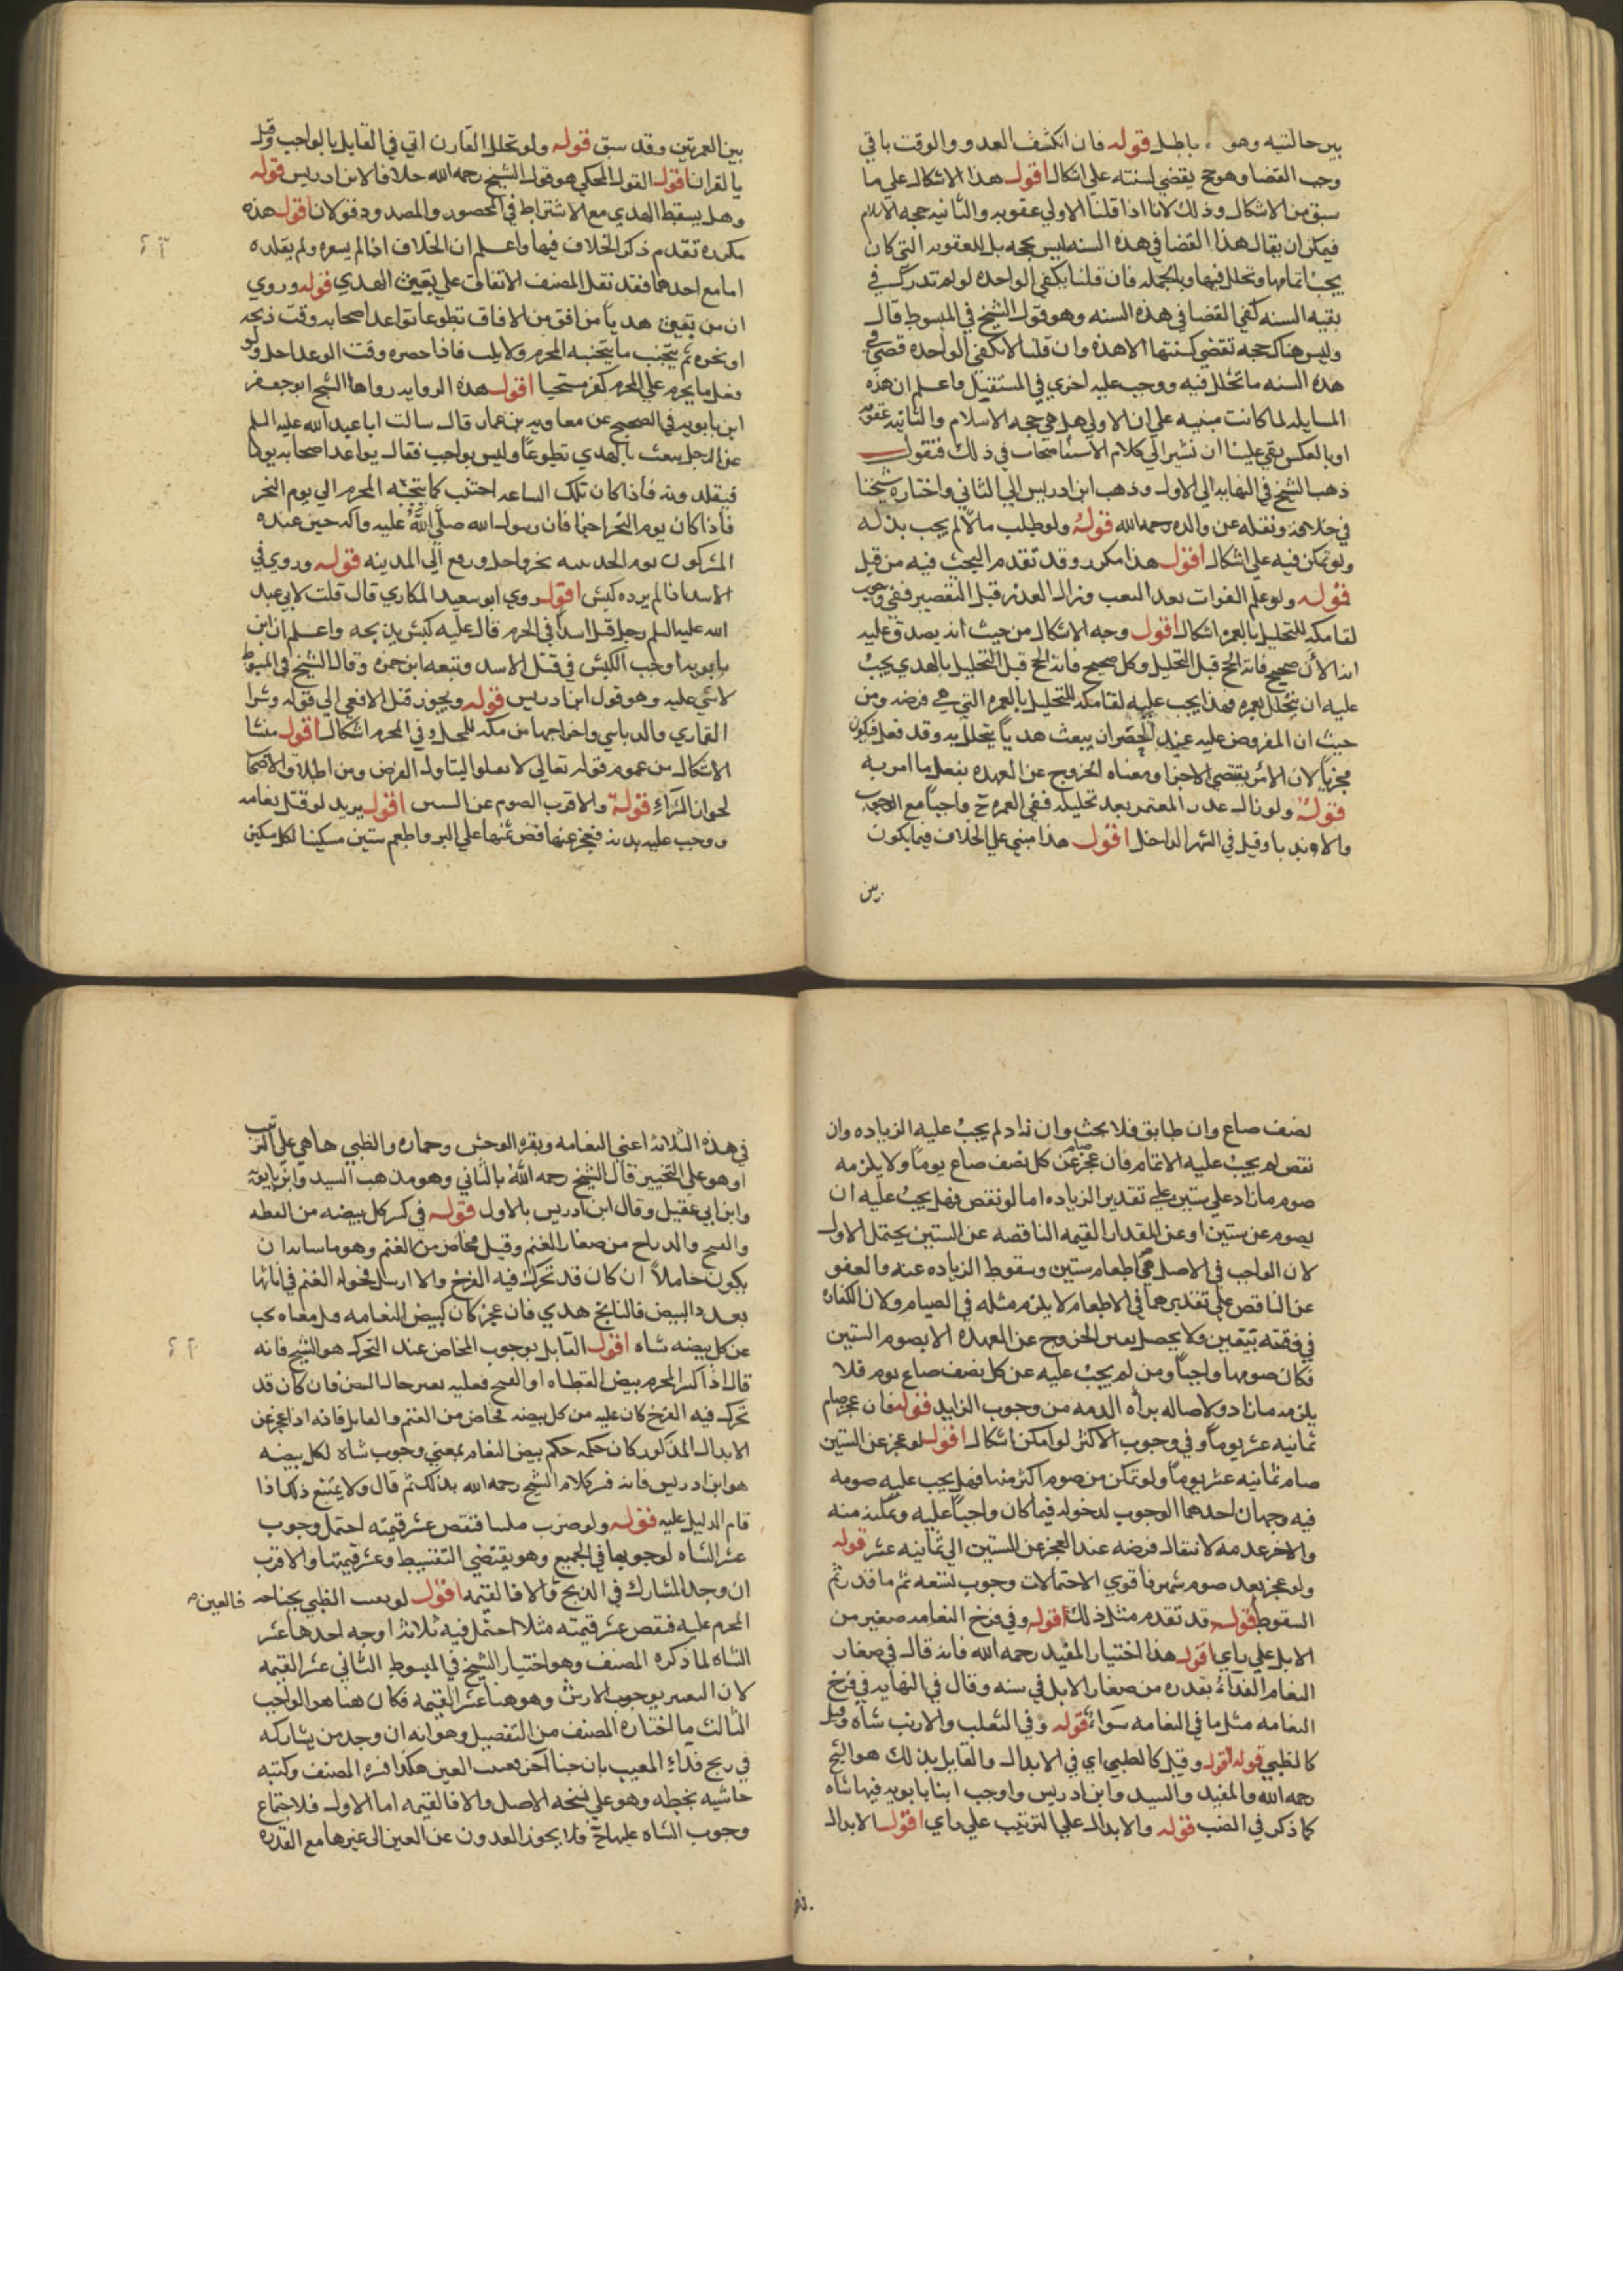 بين حالتيه وهو باطل قوله فان انكشف العدو والوقت باقي
وجب القضا وهو حج يقضي لسنته علي اشكال اقول هذا الاشكال علي ما
سبق من الاشكال وذلك لانا اذا قلنا الاولي عقوبه والثانيه حجه الاسلام
فيمكن ان يقال هذا القضا في هذه السنه ليس بحجه بل للعقوبه التي كان
يجب اتمامها وتحلل فيها وبالجمله فان قلنا يكفي الواحده لو لم تدرك في
بقيه السنه كفي القضا في هذه السنه وهو قول الشيخ في المبسوط قال
وليس هناك حجه تقضي لسنتها الا هذه وان قلنا لا تكفي الواحده قضي في
هذه السنه ما تحلل فيه ووجب عليه اخري في المستقبل واعلم ان هذه
المسايل لما كانت مبنيه علي ان الاولي هل هي حجه الاسلام والثانيه عقوبه
او بالعكس بقي علينا ان نشير الي كلام الاصحاب في ذلك فنقول
ذهب الشيخ في النهايه الي الاول وذهب ابن ادريس الي الثاني واختاره شيخنا
في خلافه ونقله عن والده رحمه الله قوله ولو طلب مالا لم يجب بذله
ولو تمكن فيه علي اشكال اقول هذا مكرر وقد تقدم البحث فيه من قبل
قوله ولو علم الفوات بعد البعث وزال العذر قبل التقصير ففي وجوب
لقا مكه للتحليل بالعمره اشكال اقول وجه الاشكال من حيث انه يصدق عليه
انه الان صحيح فاته الحج قبل التحليل وكل صحيح فاته الحج قبل التحليل بالهدي يجب
عليه ان يتحلل بعمره فهذا يجب عليه لقا مكه للتحليل بالعمره التي هي فرضه ومن
حيث ان المفروض عليه عند الحصر ان يبعث هديا يتحلل به وقد فعل فيكون
مجزيا لان الامر يقتضي الاجزا ومعناه الخروج عن العهده بفعل ما امر به
قوله ولو زال عذر المعتمر بعد تحليله ففي العمره ح واجبا مع الوجوب
والا وندبا وقيل في الشهر الداخل اقول هذا مبني علي الخلاف فيما يكون
بين
بين العمرتين وقد سبق قوله ولو تحلل القارن اتي في القابل بالواجب وقيل
بالقران اقول القول المحكي هو قول الشيخ رحمه الله خلافا لابن ادريس قوله
وهل يسقط الهدي مع الاشتراط في المحصور والمصدود قولان اقول هذه
مكرره تقدم ذكر الخلاف فيها واعلم ان الخلاف اذا لم يشعره ولم يقلده
اما مع احدهما فقد نقل المصنف الاتفاق علي بعث الهدي قوله وروي
ان من بعث هديا من افق من الافاق تطوعا تواعد اصحابه وقت ذبحه
او نحره ثم يجتنب ما يجتنبه المحرم ولا يلب فاذا حضره وقت الوعد احل ولو
فعل ما يحرم علي المحرم كفر مستحبا اقول هذه الروايه رواها الشيخ ابو جعفر
ابن بابويه في الصحيح عن معاويه بن عمار قال سالت ابا عبد الله عليه السلم
عن الرجل يبعث بالهدي تطوعا وليس بواجب فقال يواعد اصحابه يوما
فيقلدونه فاذا كان تلك الساعه اجتنب كما يجتنبه المحرم الي يوم النحر
فاذا كان يوم النحر اجزا فان رسول الله صلي الله عليه وآله حين صده
المشركون يوم الحديبيه نحر واحل ورجع الي المدينه قوله وروي في
الاسد اذا لم يرده كبش اقول روي ابو سعيد المكاري قال قلت لابي عبد
الله عليه السلم رجل قتل اسدا في الحرم قال عليه كبش يذبحه واعلم ان ابن
بابويه اوجب الكبش في قتل الاسد وتبعه ابن حمزه وقال الشيخ في المبسوط
لا شي عليه وهو قول ابن ادريس قوله ويجوز قتل الافعي الي قوله وشرا
القماري والدباسي واخراجها من مكه للمحل وفي المحرم اشكال اقول منشا
الاشكال من عموم قوله تعالي لا تقتلوا ليتناول الفرض ومن اطلاق الاصحاب
لجواز الشراء قوله والاقرب الصوم عن السن اقول يريد لو قتل نعامه
ووجب عليه بدنه فعجز عنها فض ثمنها علي البر واطعم ستين مسكينا لكل مسكين
نصف صاع وان طابق فلا بحث وان زاد لم يجب عليه الزياده وان
نقص لم يجب عليه الاتمام فان عجز صام عن كل نصف صاع يوما ولا يلزمه
صوم ما زاد علي ستين علي تقدير الزياده اما لو نقص فهل يجب عليه ان
يصوم عن ستين او عن المقدار القيمه الناقصه عن الستين يحتمل الاول
لان الواجب في الاصل هي اطعام ستين وسقوط الزياده عنه والعفو
عن الناقص علي تقديرهما في الاطعام لا يلزم مثله في الصيام ولان الكفاره
في ذمته بيقين ولا يحصل يقين الخروج عن العهده الا بصوم الستين
فكان صومها واجبا ومن لم يجب عليه عن كل نصف صاع يوم فلا
يلزمه ما زاد ولاصاله براه الذمه من وجوب الزايد قوله فان عجز صام
ثمانيه عشر يوما وفي وجوب الاكثر لو امكن اشكال اقول لو عجز عن الستين
صام ثمانيه عشر يوما ولو تمكن من صوم اكثر منها فهل يجب عليه صومه
فيه وجهان احدهما الوجوب لدخوله فيما كان واجبا عليه وتمكنه منه
والاخر عدمه لانتقال فرضه عند العجز عن الستين الي ثمانيه عشر قوله
ولو عجز بعد صوم شهر فاقوي الاحتمالات وجوب تسعه ثم ما قدر ثم
السقوط اقول قد تقدم مثل ذلك قوله وفي فرخ النعامه صغير من
الابل علي راي اقول هذا اختيار المفيد رحمه الله فانه قال في صغار
النعام الفداء بقدره من صغار الابل في سنه وقال في النهايه في فرخ
النعامه مثل ما في النعامه سواء قوله وفي الثعلب والارنب شاه وقيل
كالظبي قوله اقول وقيل كالظبي اي في الابدال والقايل بذلك هو الشيخ
رحمه الله والمفيد والسيد وابن ادريس واوجب ابنا بابويه فيها شاه
كما ذكر في الضب قوله والابدال علي الترتيب علي راي اقول الابدال
في هذه الثلاثه اعني النعامه وبقره الوحش وحماره والظبي ها هي علي الترتيب
او هو علي التخيير قال الشيخ رحمه الله بالثاني وهو مذهب السيد وابن بابويه
وابن ابي عقيل وقال ابن ادريس بالاول قوله في كسر كل بيضه من القطا
والقبج والدراج من صغار الغنم وقيل مخاض من الغنم وهو ما من شانه ان
يكون حاملا ان كان قد تحرك فيه الفرخ والا ارسل فحوله الغنم في اناثها
بعدد البيض فالناتج هدي فان عجز كان كبيض النعامه قيل معناه يجب
عن كل بيضه شاه اقول القايل بوجوب المخاض عند التحرك هو الشيخ فانه
قال اذا كسر المحرم بيض القطاه او القبج فعليه يعتبر حال البيض فان كان قد
تحرك فيه الفرخ كان عليه من كل بيضه مخاض من الغنم والقايل فانه اذا عجز عن
الابدال المذكور كان حكمه حكم بيض النعام بمعني وجوب شاه لكل بيضه
هو ابن ادريس فانه فسر كلام الشيخ رحمه الله بذلك ثم قال ولا يمتنع ذلك اذا
قام الدليل عليه قوله ولو ضرب ظبيا فنقص عشر قيمته احتمل وجوب
عشر الشاه لوجوبها في الجميع وهو يقتضي التقسيط وعشر قيمتها والاقرب
ان وجد المشارك في الذبح والا فالقيمه اقول لو عيب الظبي بجنايه
فالعين
المحرم عليه فنقص عشر قيمته مثلا احتمل فيه ثلاثه اوجه احدها عشر
الشاه لما ذكره المصنف وهو اختيار الشيخ في المبسوط الثاني عشر القيمه
لان التعييب يوجب الارش وهو هنا عشر القيمه فكان هنا هو الواجب
الثالث ما اختاره المصنف من التفصيل وهو انه ان وجد من يشاركه
في ذبح فداء المعيب بان جنا آخر فعيب العين هكذا فسره المصنف وكتبه
حاشيه بخطه وهو علي نسخه الاصل والا فالقيمه اما الاول فلاجتماع
وجوب الشاه عليها ح فلا يجوز العدول عن العين الي غيرها مع القدره